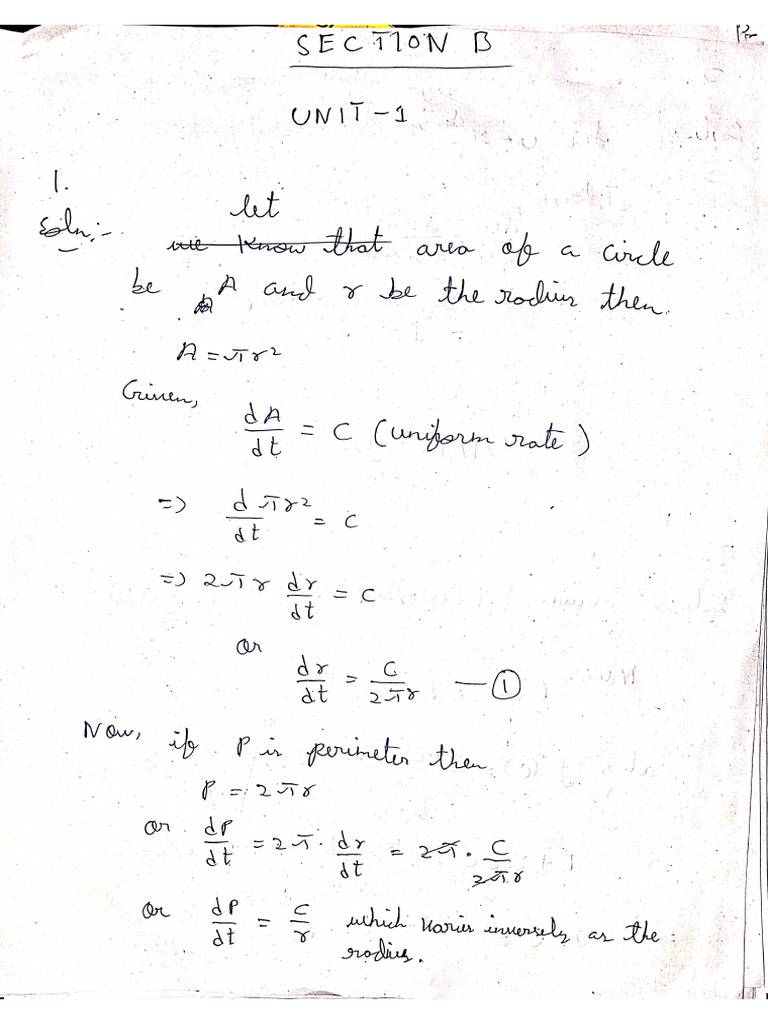 SECTION B
UNIT-1
1.
Soln:- let
we know that area of a circle
be A and r be the radius then.
A = πr²
Given,
dA/dt = C (uniform rate)
=> d πr²/dt = C
=> 2πr dr/dt = C
or
dr/dt = C/2πr — ①
Now, if P is perimeter then
P = 2πr
or dP/dt = 2π · dr/dt = 2π · C/2πr
or dP/dt = C/r which varies inversely as the
radius.